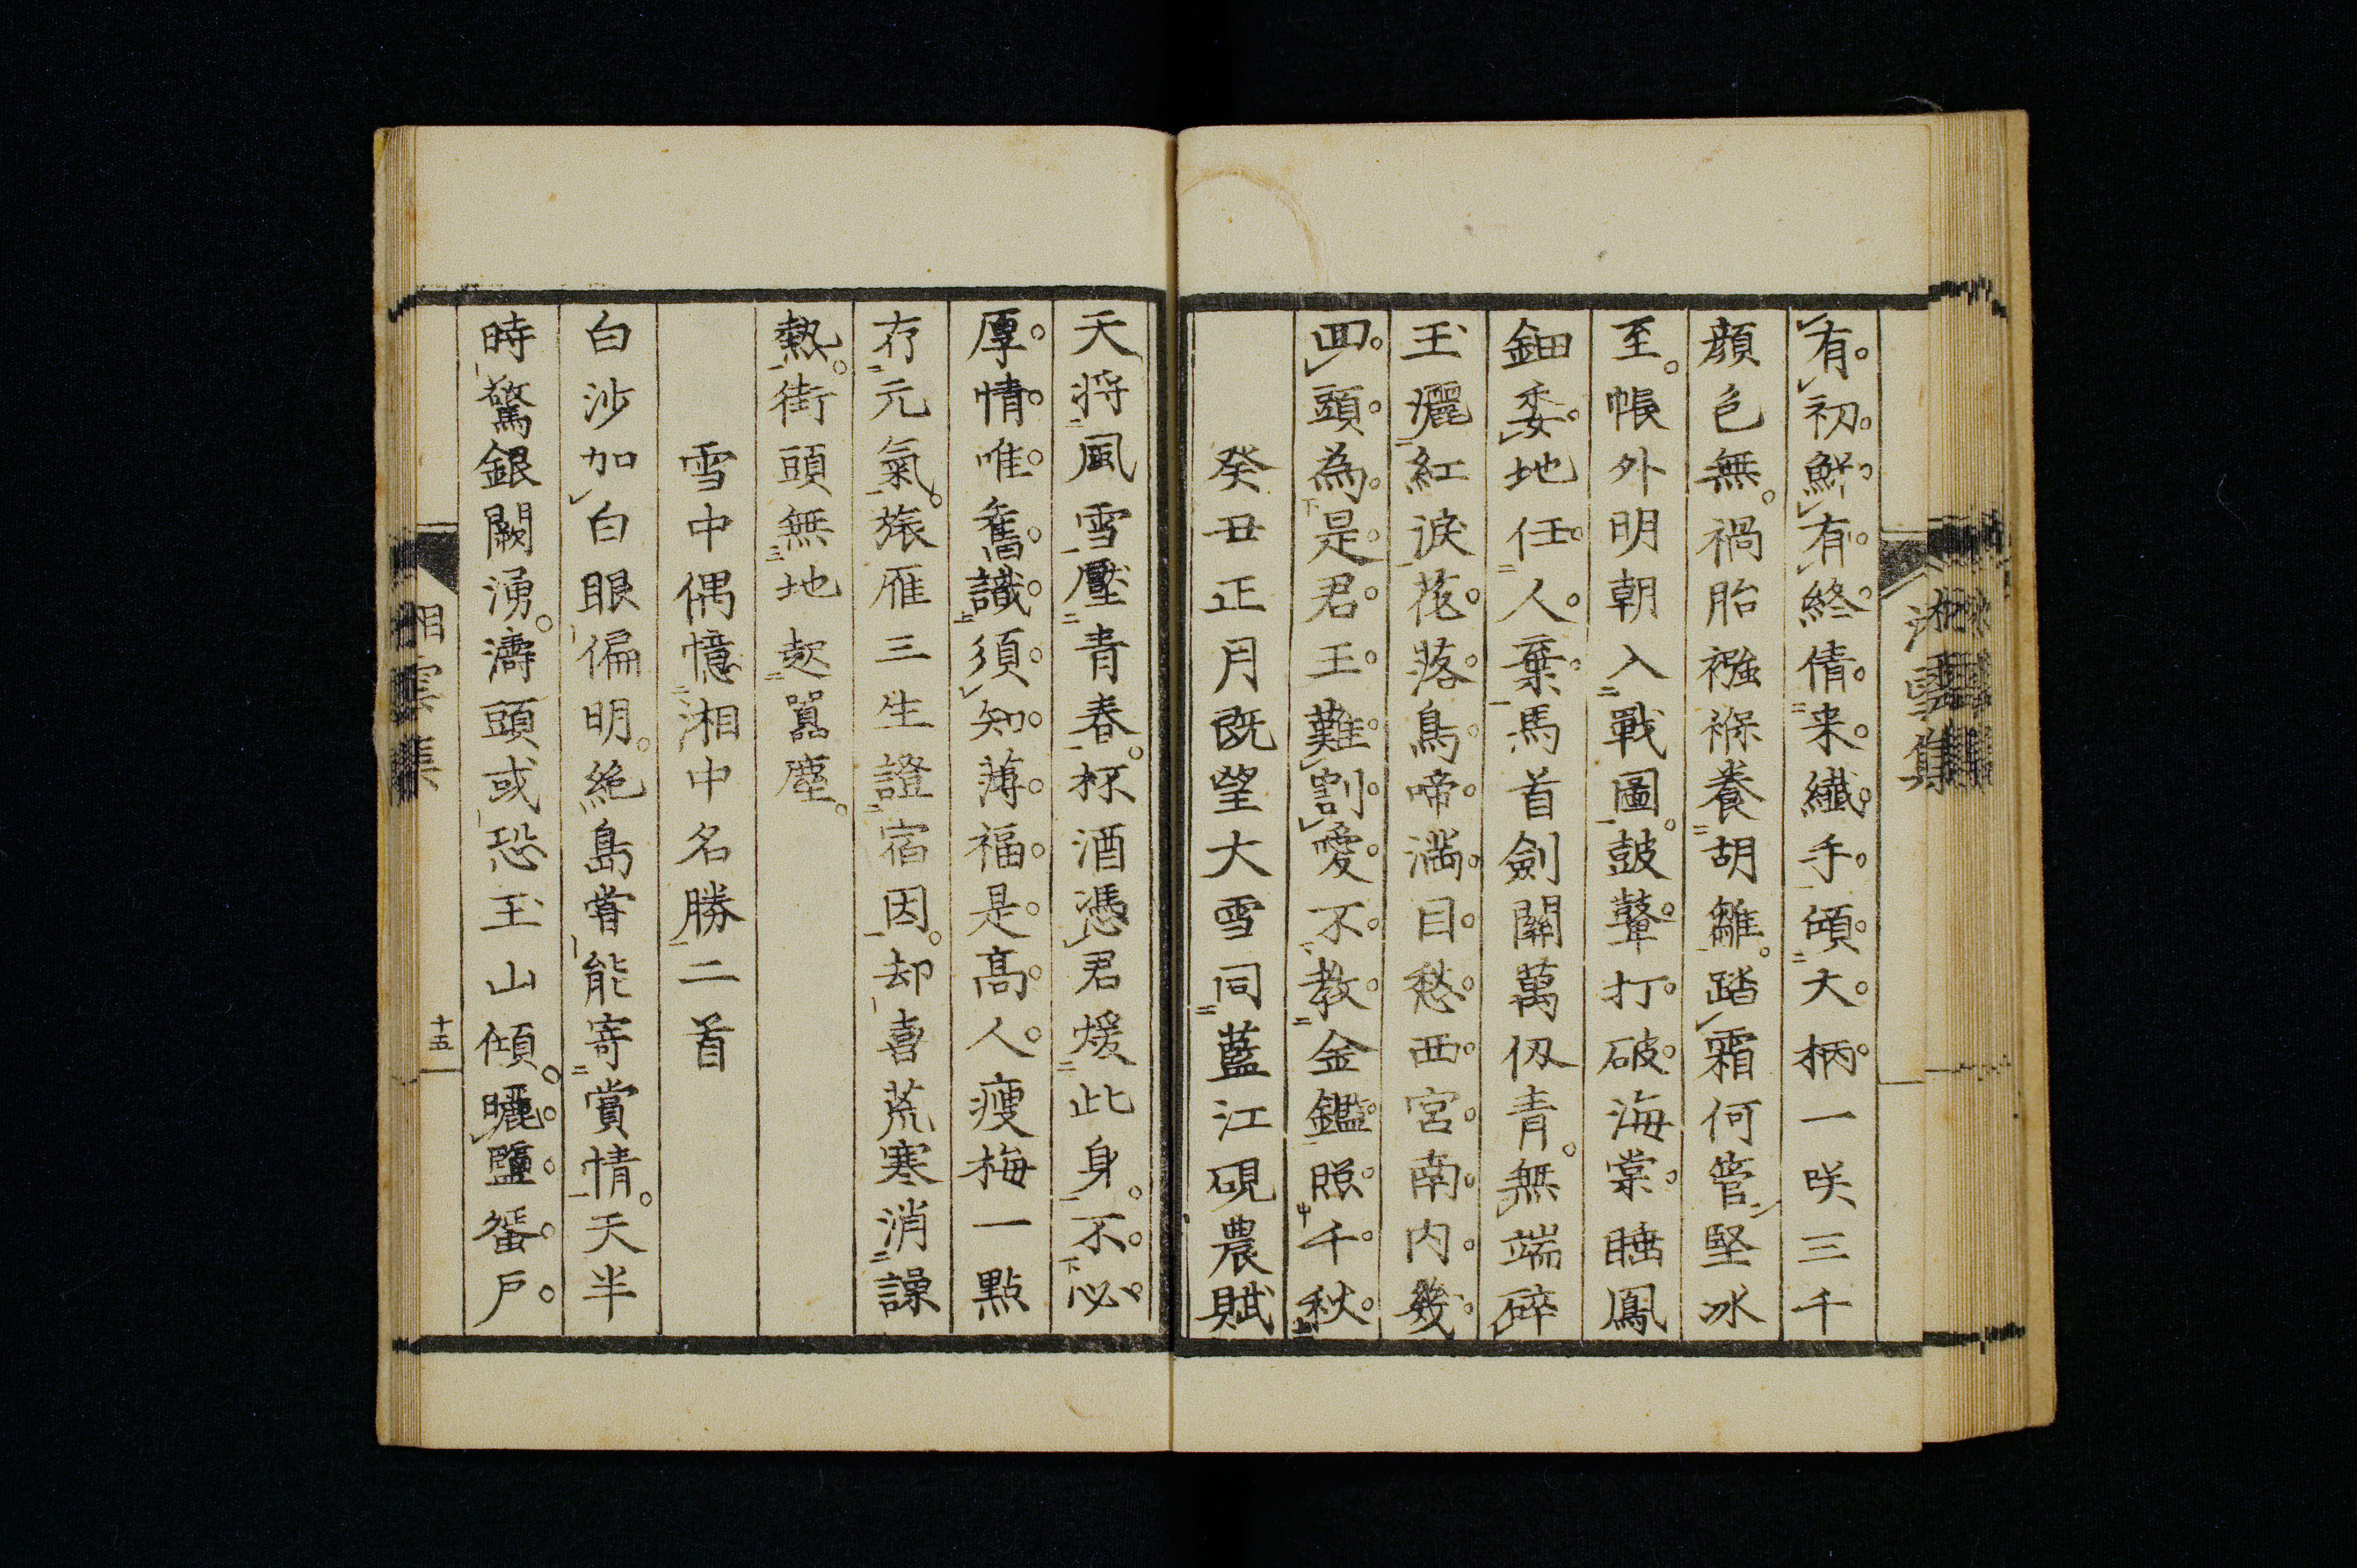 有初鮮有終倩来纎手傾大柄一咲三千
顔色無禍胎襁褓養胡雛踏霜何管堅冰
至帳外明朝入戰圖鼓鼙打破海棠睡鳳
鈿委地任人棄馬首劍關萬仭青無端碎
玉灑紅淚花落鳥啼滿目愁西宮南内幾
回頭為是君王難割愛不教金鑑照千秋
癸丑正月既望大雪同藍江硯農賦
天将風雪壓青春杯酒憑君煖此身不必
厚情唯舊識須知薄福是高人瘦梅一點
存元氣旅雁三生證宿因却喜荒寒消譟
熱街頭無地起囂塵
雪中偶憶湘中名勝二首
白沙加白眼偏明絶島嘗能寄賞情天半
時驚銀闕湧濤頭或恐玉山傾曬鹽蜑戸
湘雲集
十五